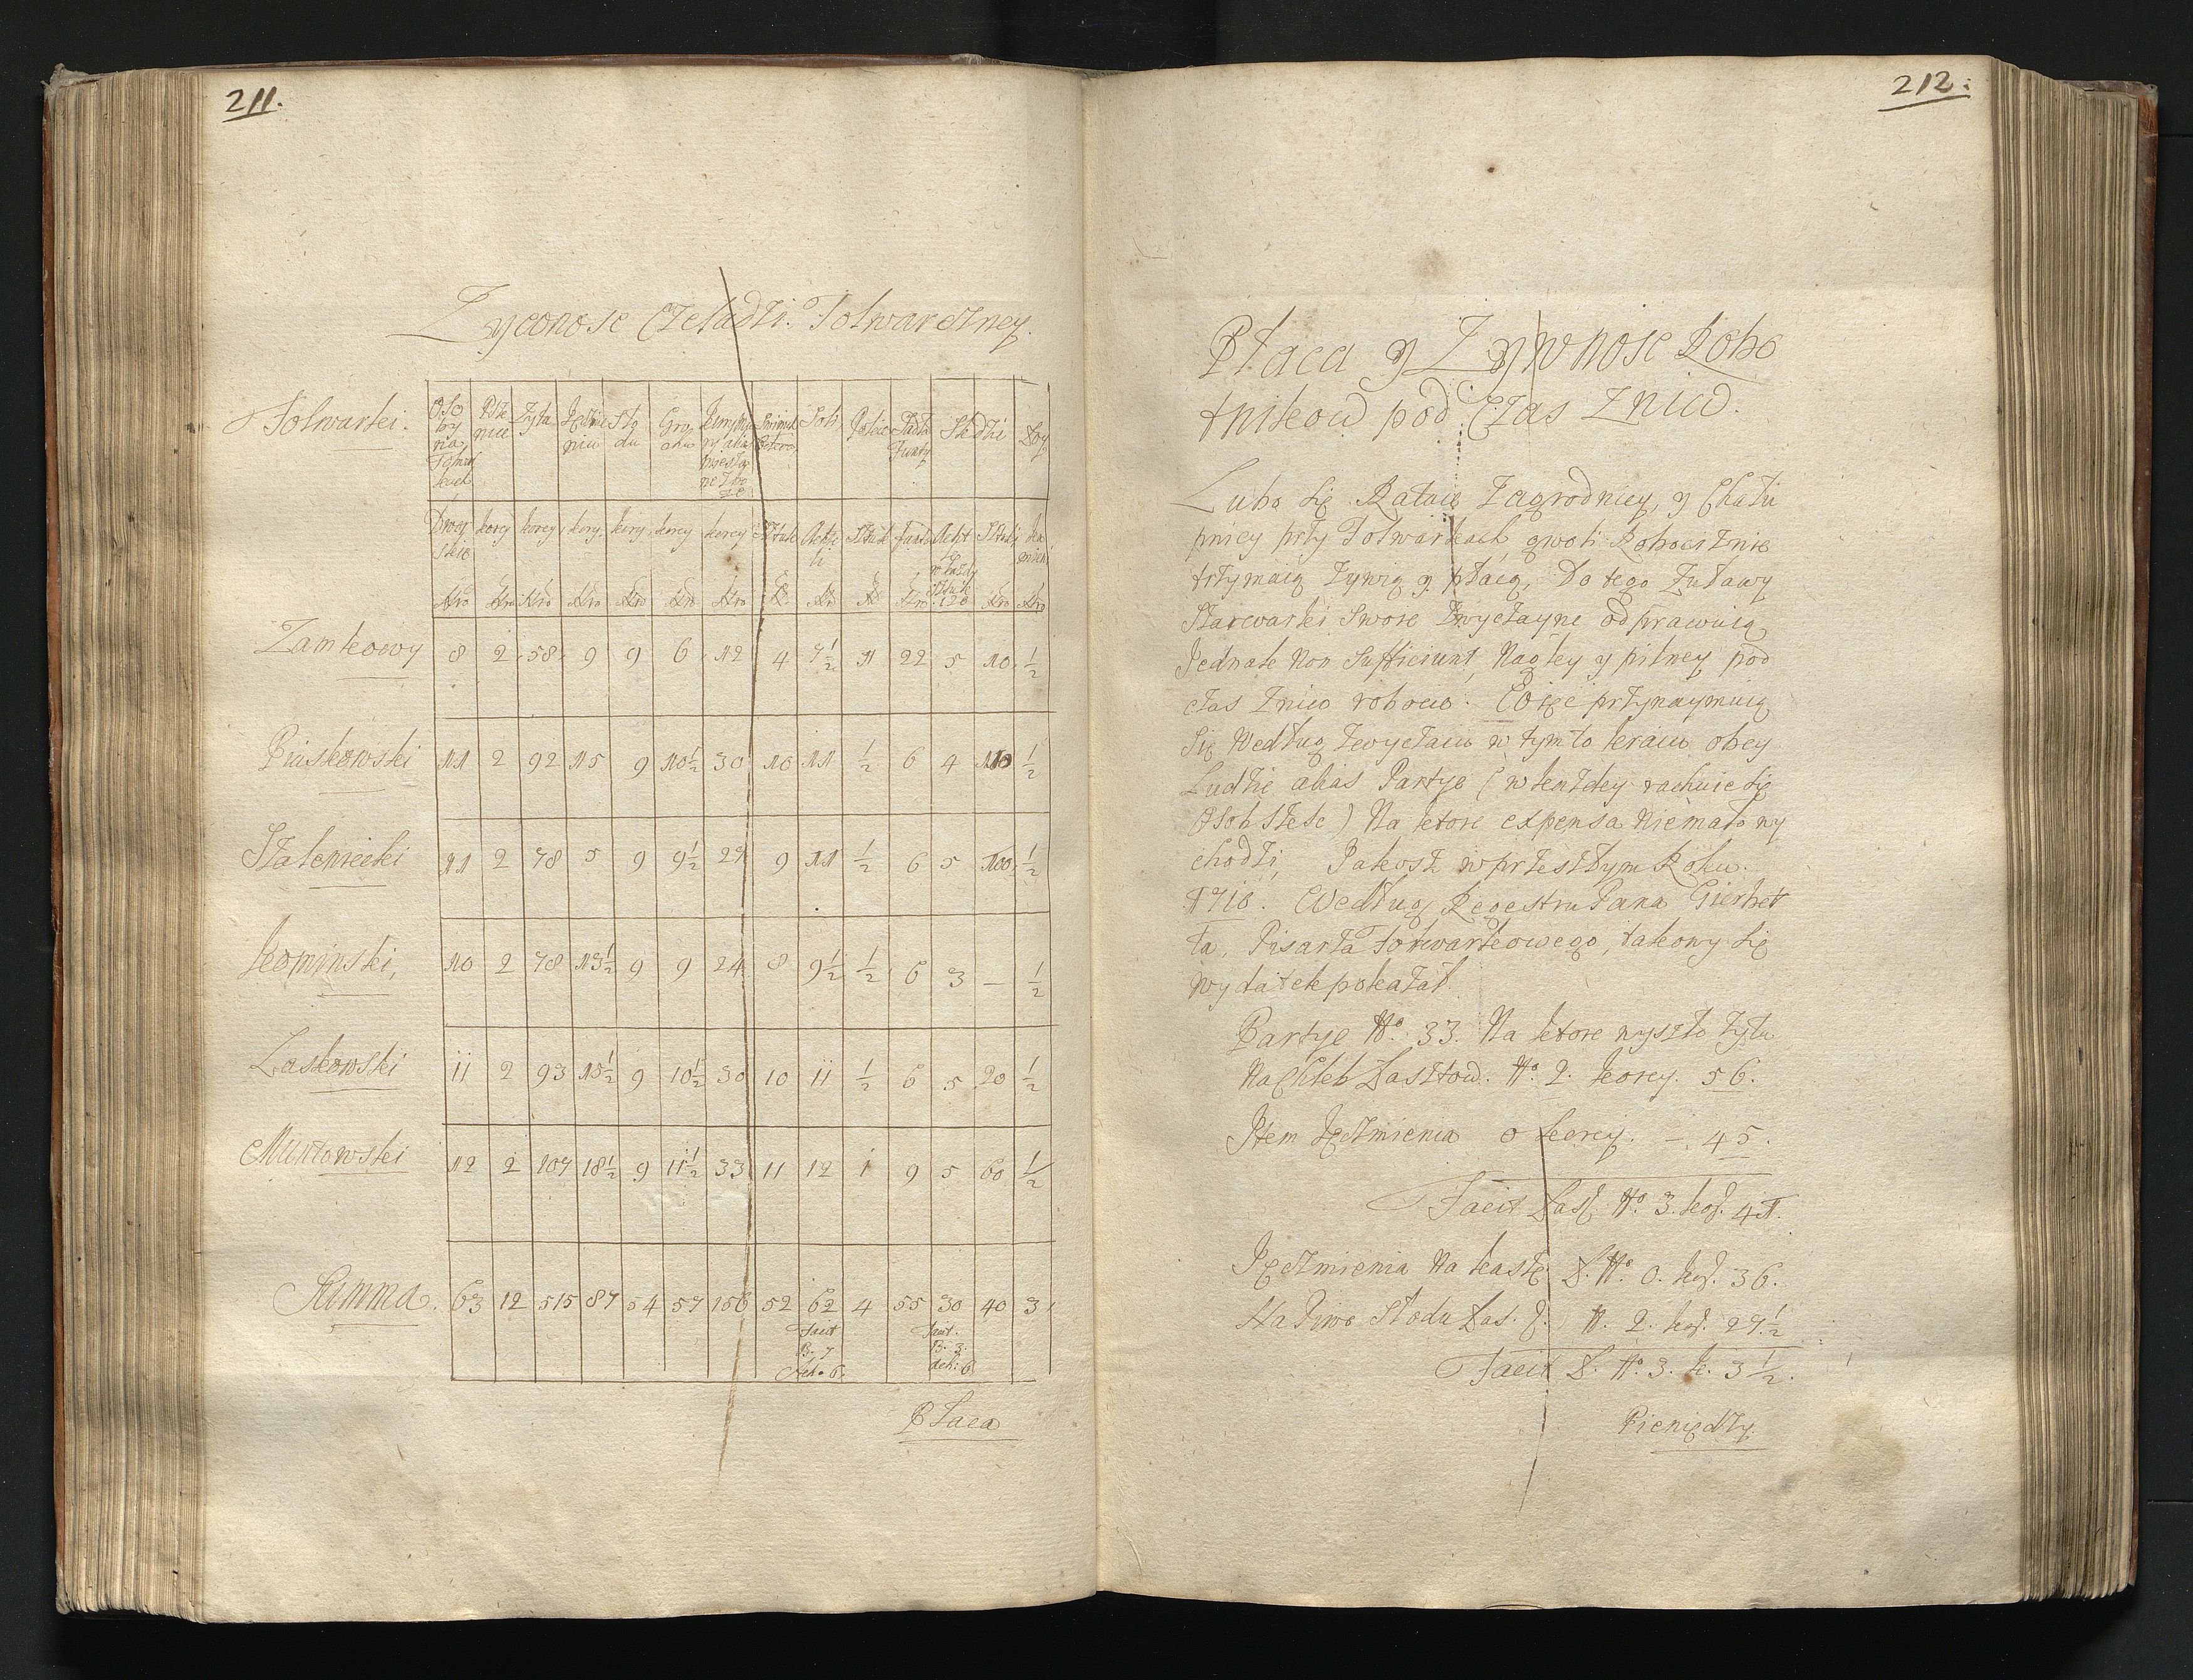 211.
Zywnosc Czeladzi Folwarczney.
Folwarki.
Oso by na Folwar kach | Psze nice | Zyta | Jęczmie niu | Sło du | Gro chu | | | Soli | | Sadła Funty | Sledzi |
korcy | korcy | korcy | korcy | korcy | korcy | Sztuk | Achte li | Sztuk | funt | Acht | Sztuk
Nro Nro Nro Nro Nro Nro Nro
Zamkowy 8 2 58 9 9 6 12 4 7½ 1 22 5 10 ½
Piaskowski 11 2 92 15 9 10½ 30 10 11 ½ 6 4 ½
Sztalmicki 11 2 78 5 9 9½ 27 9 11 ½ 6 5 ½
Kominski, 10 2 78 13½ 9 9 24 8 9½ ½ 6 3 — ½
Laskowski 11 2 93 15½ 9 10½ 30 10 11 ½ 6 5 20 ½
Muntowski 12 2 107 18½ 9 11½ 33 11 12 1 9 5 60 ½
Summa. 63 12 515 87 54 57 156 52 62 4 55 30 40 3
Facit Facit.
B. 7 B. 3.
Ach. 6. ach: 6
Płaca
212.
Płaca y Zywnosc Robo
tnikow pod Czas Zniw.
Lubo się Rataie Zagrodnicy, y Chału
pnicy przy Folwarkach gwoli Robociznie
trzymaią Zywią y płacą, Do tego Zuławy
Szarwarki Swoie Zwyczayne odprawuią
Jednak Non Sufficiunt, Nagłey y pilney pod
czas Zniw robocie. Co się przynaymuią
Się Według Zwyczaiu w tymto kraiu obcy
Ludzie alias Partye (w kazdey rachuie się
Osob Szesc) Na ktore expensa Niemało wy
chodzi, Jakosz w przeszłym Roku.
1710. Według Regestru Pana Gierket
ta, Pisarza Folwarkowego, takowy się
wydatek pokazał.
Partye No. 33. Na ktore wyszło Zyta
Na Chleb Łasztow. No. 2. korcy. 56.
Item Jęczmienia 0 korcy. —. 45.
Facit Łasz. No. 3. kor. 41.
Jęczmienia Na kaszę Ł. No. 0. kor. 36.
Na Piwo Słodu Łas. No. 2. kor. 27½
Facit Ł. No. 3. k. 3½.
Pieniędzy.